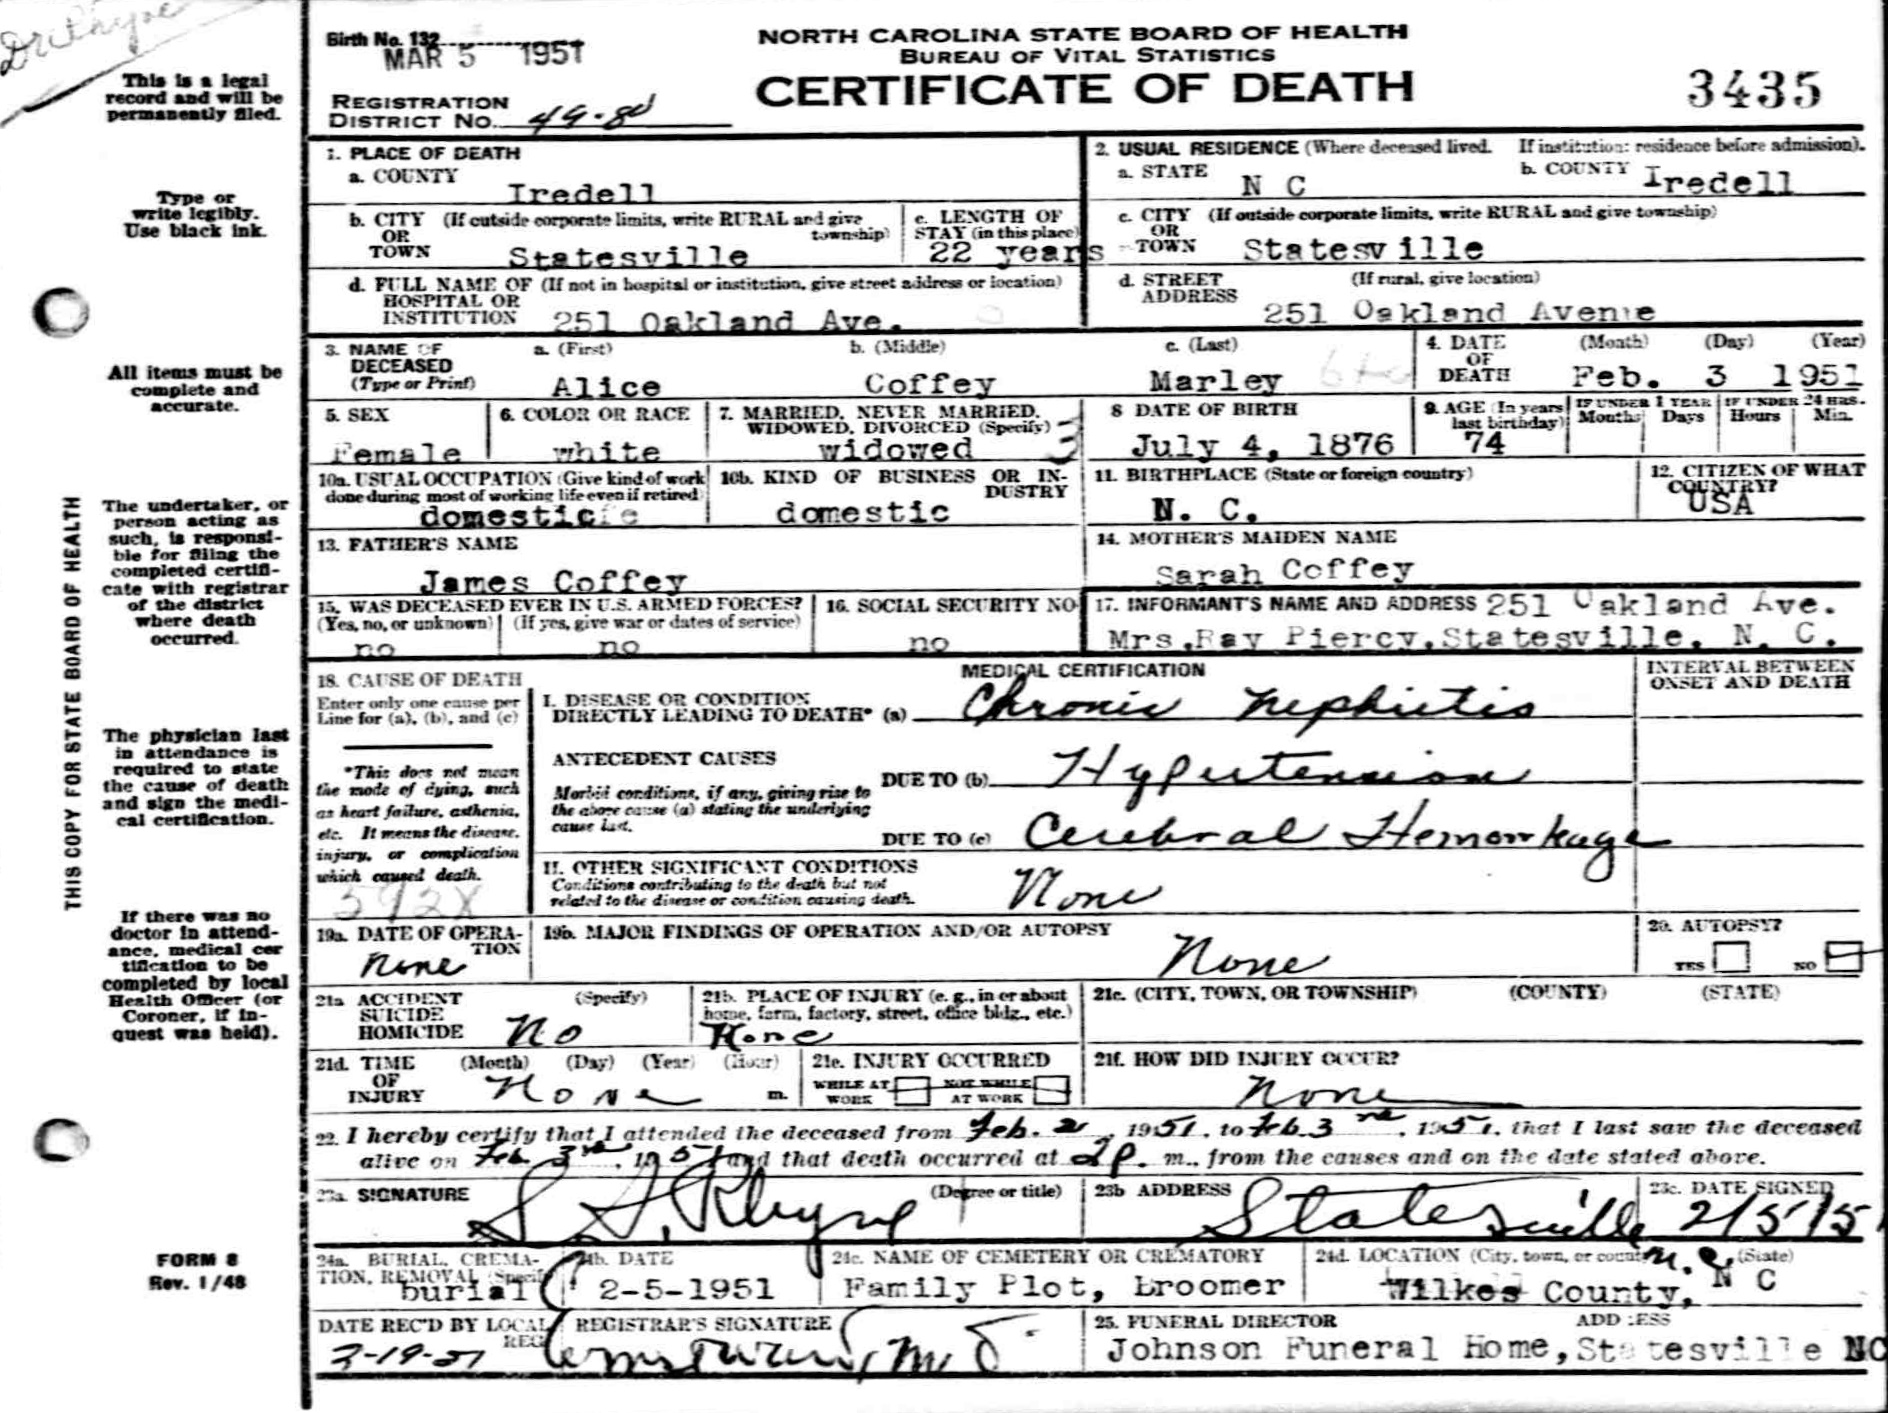 Dr Rhyne
Birth No. 132
MAR 5 1951
NORTH CAROLINA STATE BOARD OF HEALTH
BUREAU OF VITAL STATISTICS
CERTIFICATE OF DEATH
3435
REGISTRATION
DISTRICT No. 49-80
This is a legal
record and will be
permanently filed.
Type or
write legibly.
Use black ink.
All items must be
complete and
accurate.
The undertaker, or
person acting as
such, is responsi-
ble for filing the
completed certifi-
cate with registrar
of the district
where death
occurred.
The physician last
in attendance is
required to state
the cause of death
and sign the medi-
cal certification.
If there was no
doctor in attend-
ance, medical cer
tification to be
completed by local
Health Officer (or
Coroner, if in-
quest was held).
FORM 8
Rev. 1/48
THIS COPY FOR STATE BOARD OF HEALTH
1. PLACE OF DEATH
a. COUNTY Iredell
b. CITY (If outside corporate limits, write RURAL and give
OR township)
TOWN Statesville
c. LENGTH OF
STAY (in this place)
22 years
d. FULL NAME OF (If not in hospital or institution, give street address or location)
HOSPITAL OR
INSTITUTION 251 Oakland Ave.
2. USUAL RESIDENCE (Where deceased lived. If institution: residence before admission).
a. STATE N C b. COUNTY Iredell
c. CITY (If outside corporate limits, write RURAL and give township)
OR
TOWN Statesville
d. STREET (If rural, give location)
ADDRESS 251 Oakland Avenue
3. NAME OF a. (First) b. (Middle) c. (Last)
DECEASED
(Type or Print) Alice Coffey Marley
4. DATE (Month) (Day) (Year)
OF
DEATH Feb. 3 1951
5. SEX
Female
6. COLOR OR RACE
white
7. MARRIED, NEVER MARRIED,
WIDOWED, DIVORCED (Specify)
widowed 3
8 DATE OF BIRTH
July 4, 1876
9. AGE (In years
last birthday)
74
IF UNDER 1 YEAR
Months Days
IF UNDER 24 HRS.
Hours Min.
10a. USUAL OCCUPATION (Give kind of work
done during most of working life even if retired)
domestic
10b. KIND OF BUSINESS OR IN-
DUSTRY
domestic
11. BIRTHPLACE (State or foreign country)
N. C.
12. CITIZEN OF WHAT
COUNTRY?
USA
13. FATHER'S NAME
James Coffey
14. MOTHER'S MAIDEN NAME
Sarah Coffey
15. WAS DECEASED EVER IN U.S. ARMED FORCES?
(Yes, no, or unknown) (If yes, give war or dates of service)
no no
16. SOCIAL SECURITY NO
no
17. INFORMANT'S NAME AND ADDRESS 251 Oakland Ave.
Mrs. Ray Piercy, Statesville, N. C.
18. CAUSE OF DEATH
Enter only one cause per
Line for (a), (b), and (c)
*This does not mean
the mode of dying, such
as heart failure, asthenia,
etc. It means the disease,
injury, or complication
which caused death.
592X
MEDICAL CERTIFICATION
INTERVAL BETWEEN
ONSET AND DEATH
I. DISEASE OR CONDITION
DIRECTLY LEADING TO DEATH* (a) Chronic Nephritis
ANTECEDENT CAUSES
DUE TO (b) Hypertension
Morbid conditions, if any, giving rise to
the above cause (a) stating the underlying
cause last.
DUE TO (c) Cerebral Hemorrhage
II. OTHER SIGNIFICANT CONDITIONS
Conditions contributing to the death but not
related to the disease or condition causing death.
None
19a. DATE OF OPERA-
TION
None
19b. MAJOR FINDINGS OF OPERATION AND/OR AUTOPSY
None
20. AUTOPSY?
YES NO
21a ACCIDENT (Specify)
SUICIDE
HOMICIDE No
21b. PLACE OF INJURY (e. g., in or about
home, farm, factory, street, office bldg., etc.)
None
21c. (CITY, TOWN, OR TOWNSHIP) (COUNTY) (STATE)
21d. TIME (Month) (Day) (Year) (Hour)
OF
INJURY None m.
21e. INJURY OCCURRED
WHILE AT NOT WHILE
WORK AT WORK
21f. HOW DID INJURY OCCUR?
None
22. I hereby certify that I attended the deceased from Feb. 2, 1951, to Feb. 3rd, 1951, that I last saw the deceased
alive on Feb. 3rd, 1951 and that death occurred at 2 P. m., from the causes and on the date stated above.
23a. SIGNATURE (Degree or title)
Rhyne
23b ADDRESS
Statesville N.C.
23c. DATE SIGNED
2/5/51
24a. BURIAL, CREMA-
TION, REMOVAL (Specify)
burial
24b. DATE
2-5-1951
24c. NAME OF CEMETERY OR CREMATORY
Family Plot, Boomer
24d. LOCATION (City, town, or county) (State)
Wilkes County, N C
DATE REC'D BY LOCAL
REG.
2-19-51
REGISTRAR'S SIGNATURE
25. FUNERAL DIRECTOR ADDRESS
Johnson Funeral Home, Statesville NC